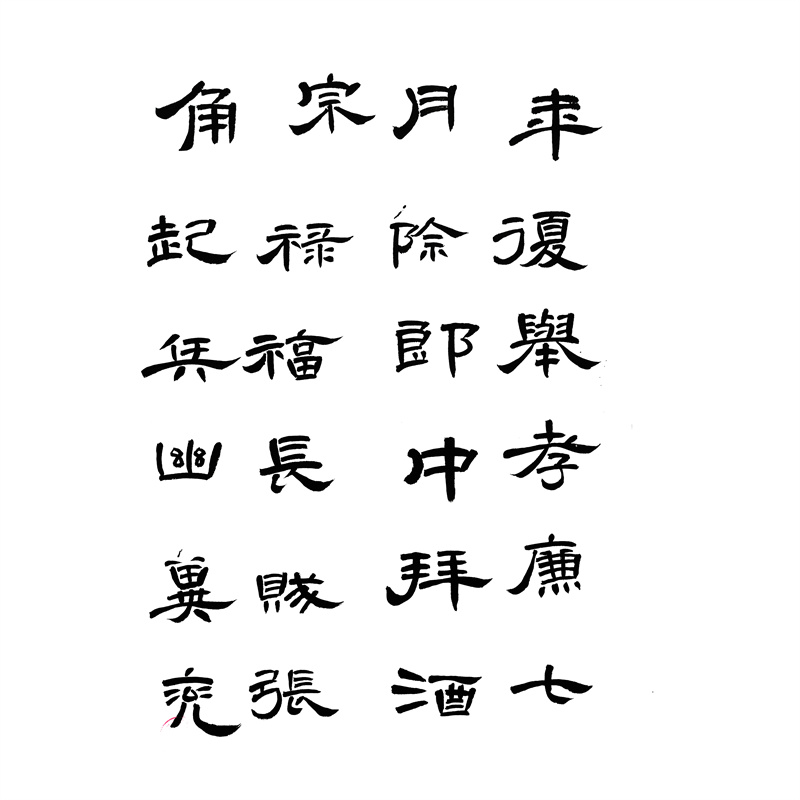 年復舉孝廉七
月除郎中拜酒
宗禄福長張
角起兵幽冀兗